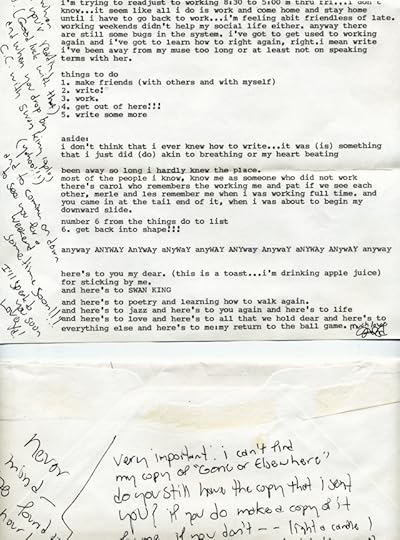 i'm trying to read just to working 8:30 to 5:00 m thru fri...i don't
know...it seem like all i do is work and come home and stay home
until i have to go back to work...i'm feeling abit friendless of late.
working weekends didn't help my social life either. anyway there
are still some bugs in the system. i've got to get used to working
again and i've got to learn how to right again, right.i mean write
i've been away from my muse too long or at least not on speaking
terms with her.
things to do
1. make friends (with others and with myself)
2. write!
3. work.
4. get out of here!!!
5. write some more
aside:
i don't think that i ever knew how to write...it was (is) something
that i just did (do) akin to breathing or my heart beating
been away so long i hardly knew the place.
most of the people i know, know me as someone who did not work
there's carol who remembers the working me and pat if we see each
other, merle and les remember me when i was working me. and
you came in at the tail end of it, when i was about to begin my
downward slide.
number 6 from the things do to list
6. get back into shape!!!
anyway ANYWAY AnYwAy aNyWaY anyWAY ANYway AnywaY aNYWAy ANYwAY anyway
here's to you my dear. (this is a toast...i'm drinking apple juice)
for sticking by me.
and here's to SWAN KING
and here's to poetry and learning how to walk again.
and here's to jazz and here's to you again and here's to life
and here's to love and here's to all that we hold dear and here's to
everything else and here's to me:my return to the ball game. much love
Good luck with that
and when you drop by
C.C. with Swan King copy
(yahoo!!)
to see you
weekend
sometime soon!!
soon
Love ya
never
mind—
found it
Very important: i can't find
my copy of "Gone or Elsewhere"
do you still have the copy that I sent
you? if you do make a copy of it
if you don't -- (light a candle)